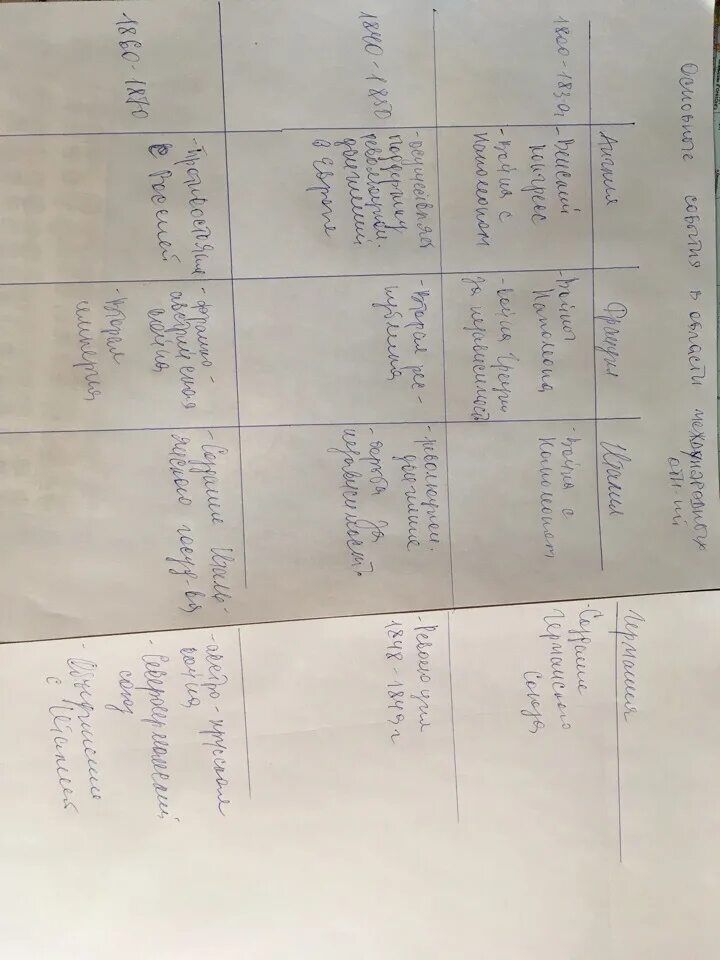 Основные события в области международных
отн-ий
Англия Франция Италия Германия
1800-1830г
- Венский
конгресс
- Война с
Наполеоном
- Войны
Наполеона
- война Греции
за независимость
- Война с
Наполеоном
- Создание
Германского
Союза
1840-1850
- осуществляет
поддержку
революцион.
движений
в Европе
- Вторая рес-
публика
- революцион.
движение
- борьба за
независимость
- Революция
1848-1849г
1860-1870
- Противостояние
с Россией
- франко-
австрийская
война
- Вторая
империя
- Создание Италь-
янского госуд-ва
- австро-прусская
война
- Северогерманский
союз
- Объединение
с Италией